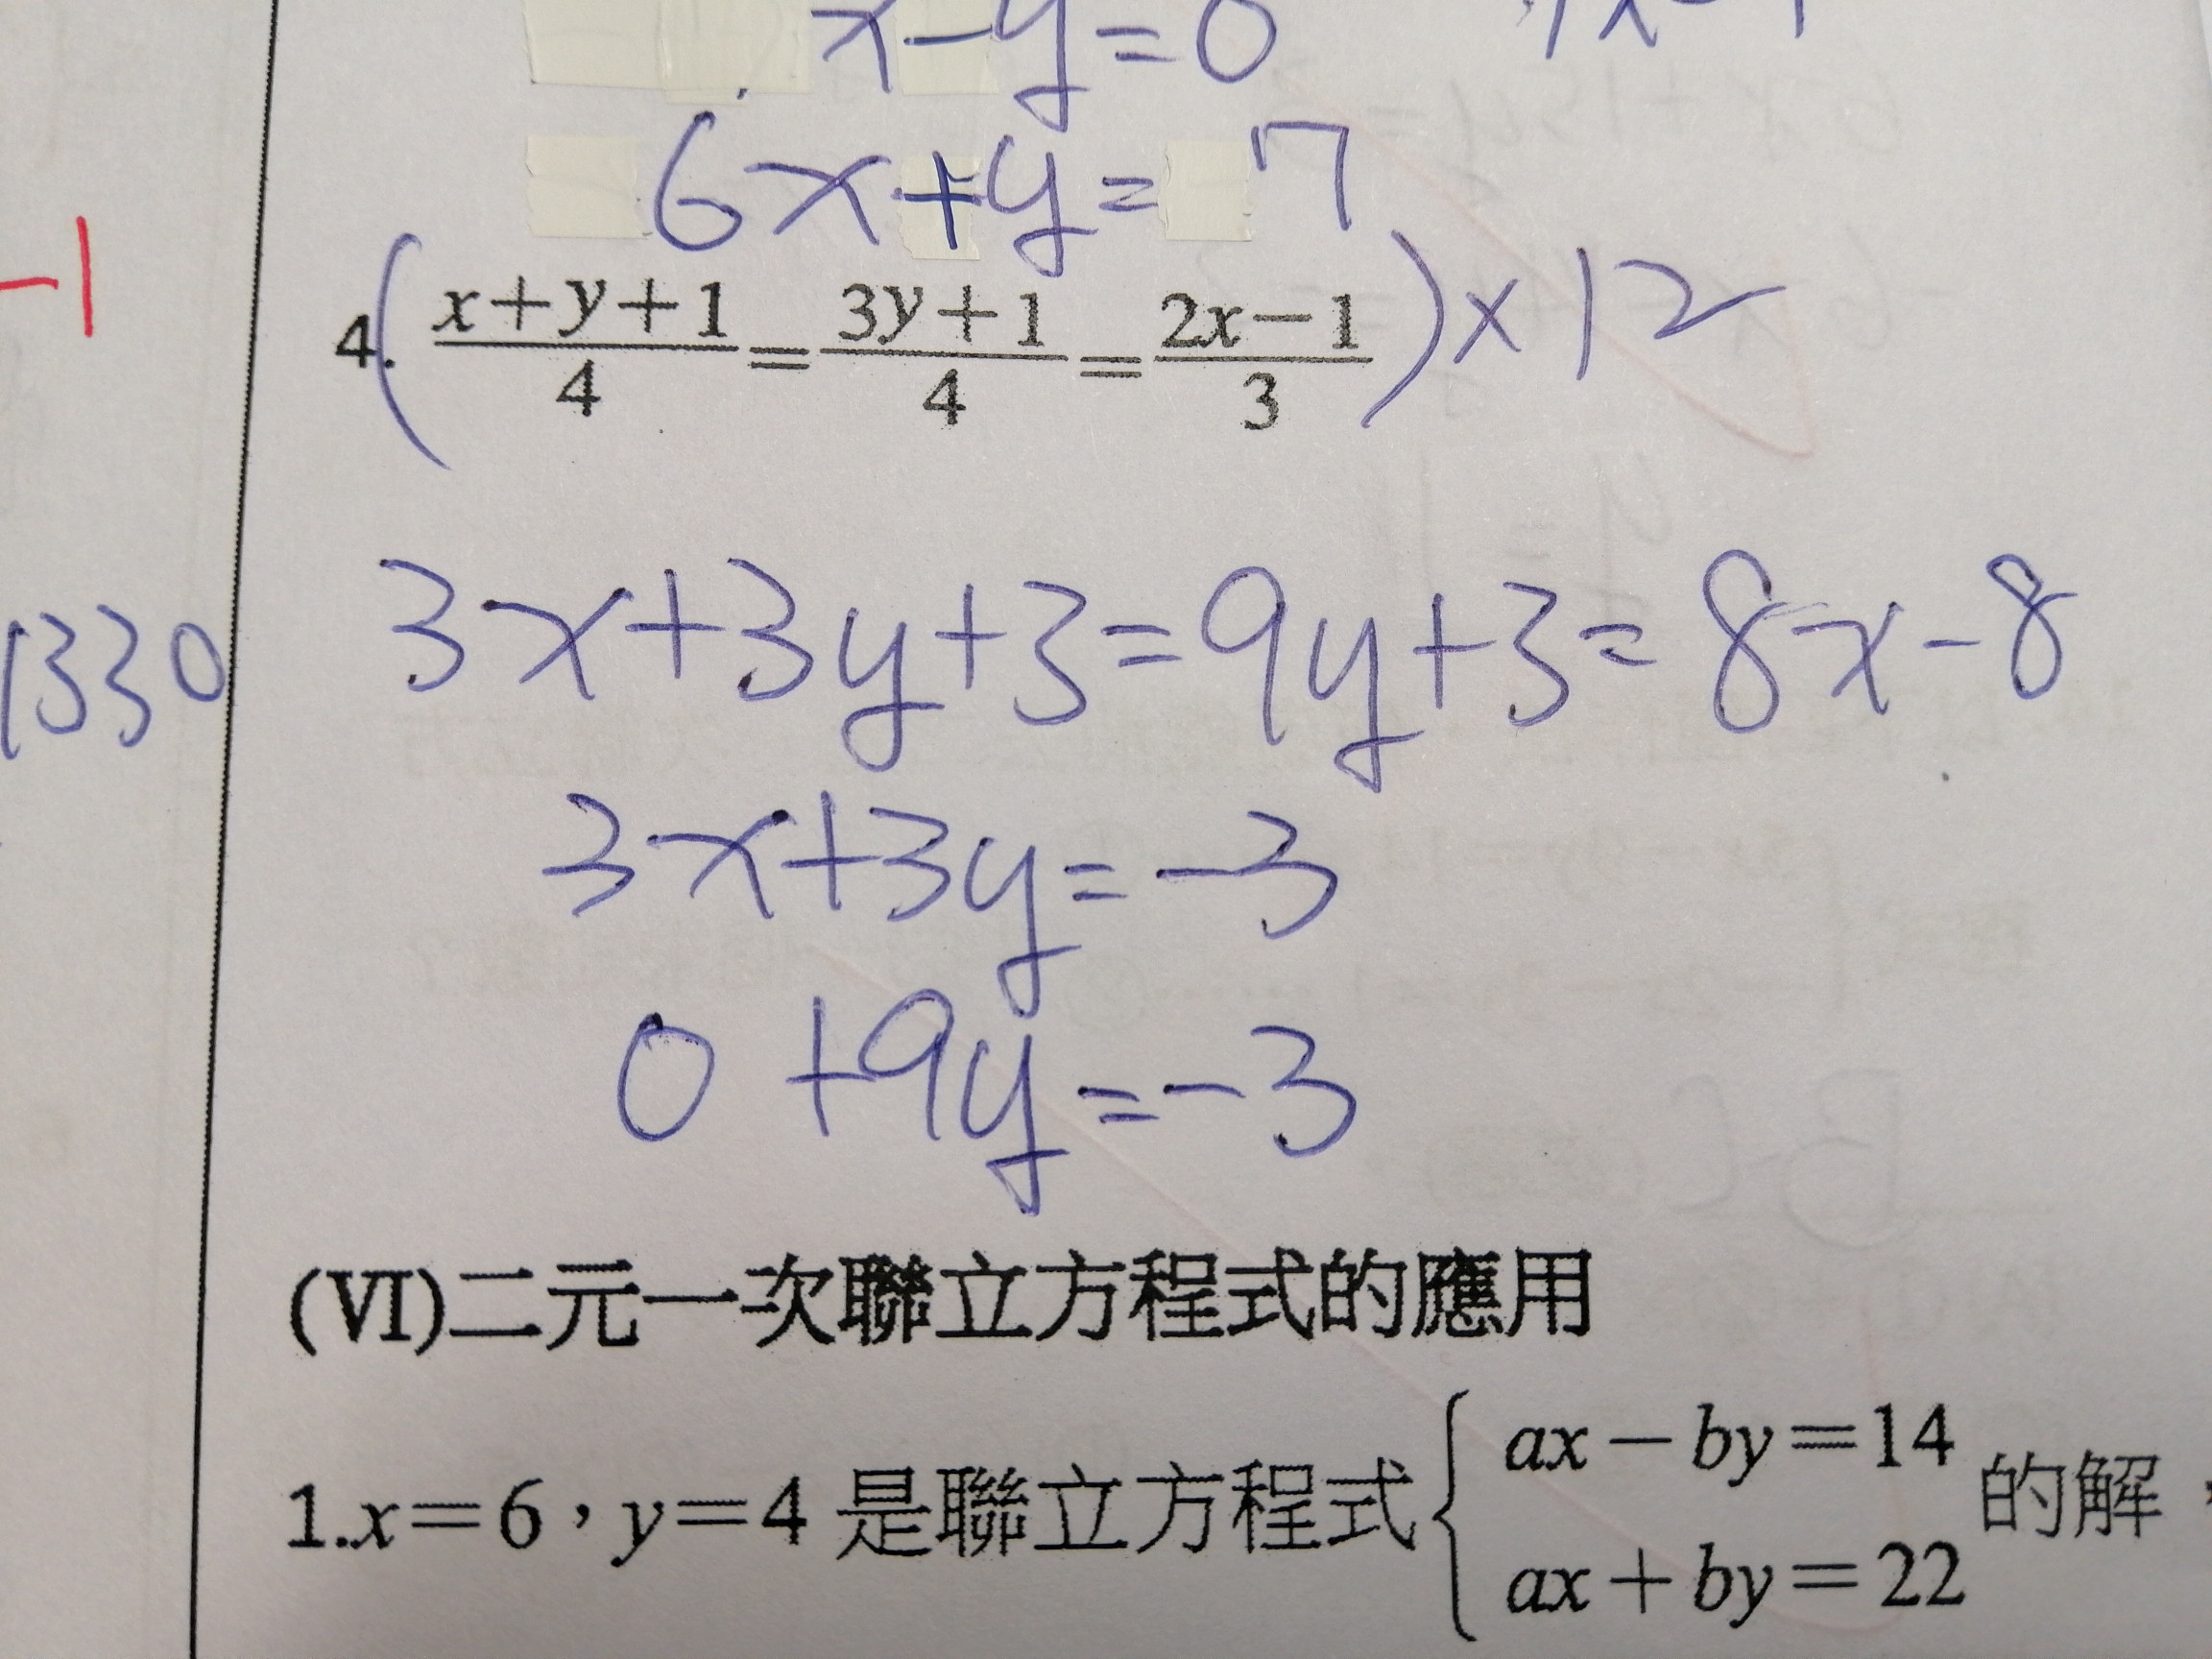 x-y=0
6x+y=7
-1
4.(\frac{x+y+1}{4}=\frac{3y+1}{4}=\frac{2x-1}{3})×12
1330
3x+3y+3=9y+3=8x-8
3x+3y=-3
0+9y=-3
(VI)二元一次聯立方程式的應用
1.x=6，y=4 是聯立方程式{ax-by=14
ax+by=22 的解，